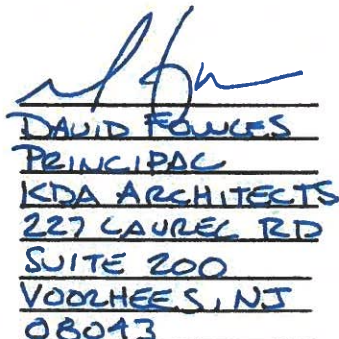 DAVID FOWLES
PRINCIPAL
KDA ARCHITECTS
227 LAUREL RD
SUITE 200
VOORHEES, NJ
08043